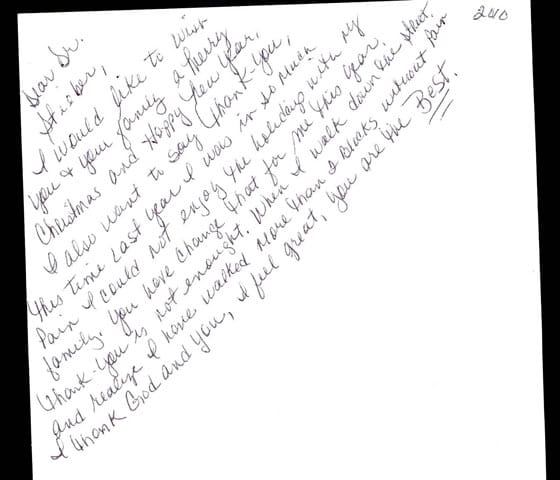 2010
Dear Dr.
Stieber,
I would like to wish
you & your family a Merry
Christmas and Happy New Year,
I also want to say Thank You,
this time last year I was in so much
Pain I could not enjoy the holidays with my
family. You have change that for me this year
Thank-You is not enought. When I walk down the street
and realize I have walked more than 2 blocks without Pain
I thank God and you, I feel great, you are the BEST.